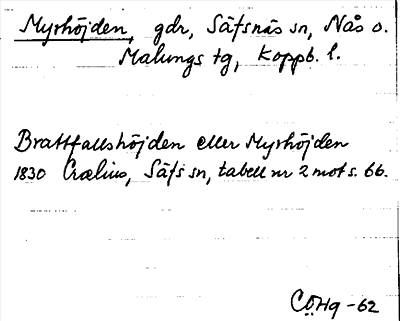 Myrhöjden, gdr, Säfsnäs sn, Nås o.
Malungs tg, Koppb. l.
Brattfallshöjden eller Myrhöjden
1830 Crælius, Säfs sn, tabell nr 2 mot s. 66.
CÖHg -62